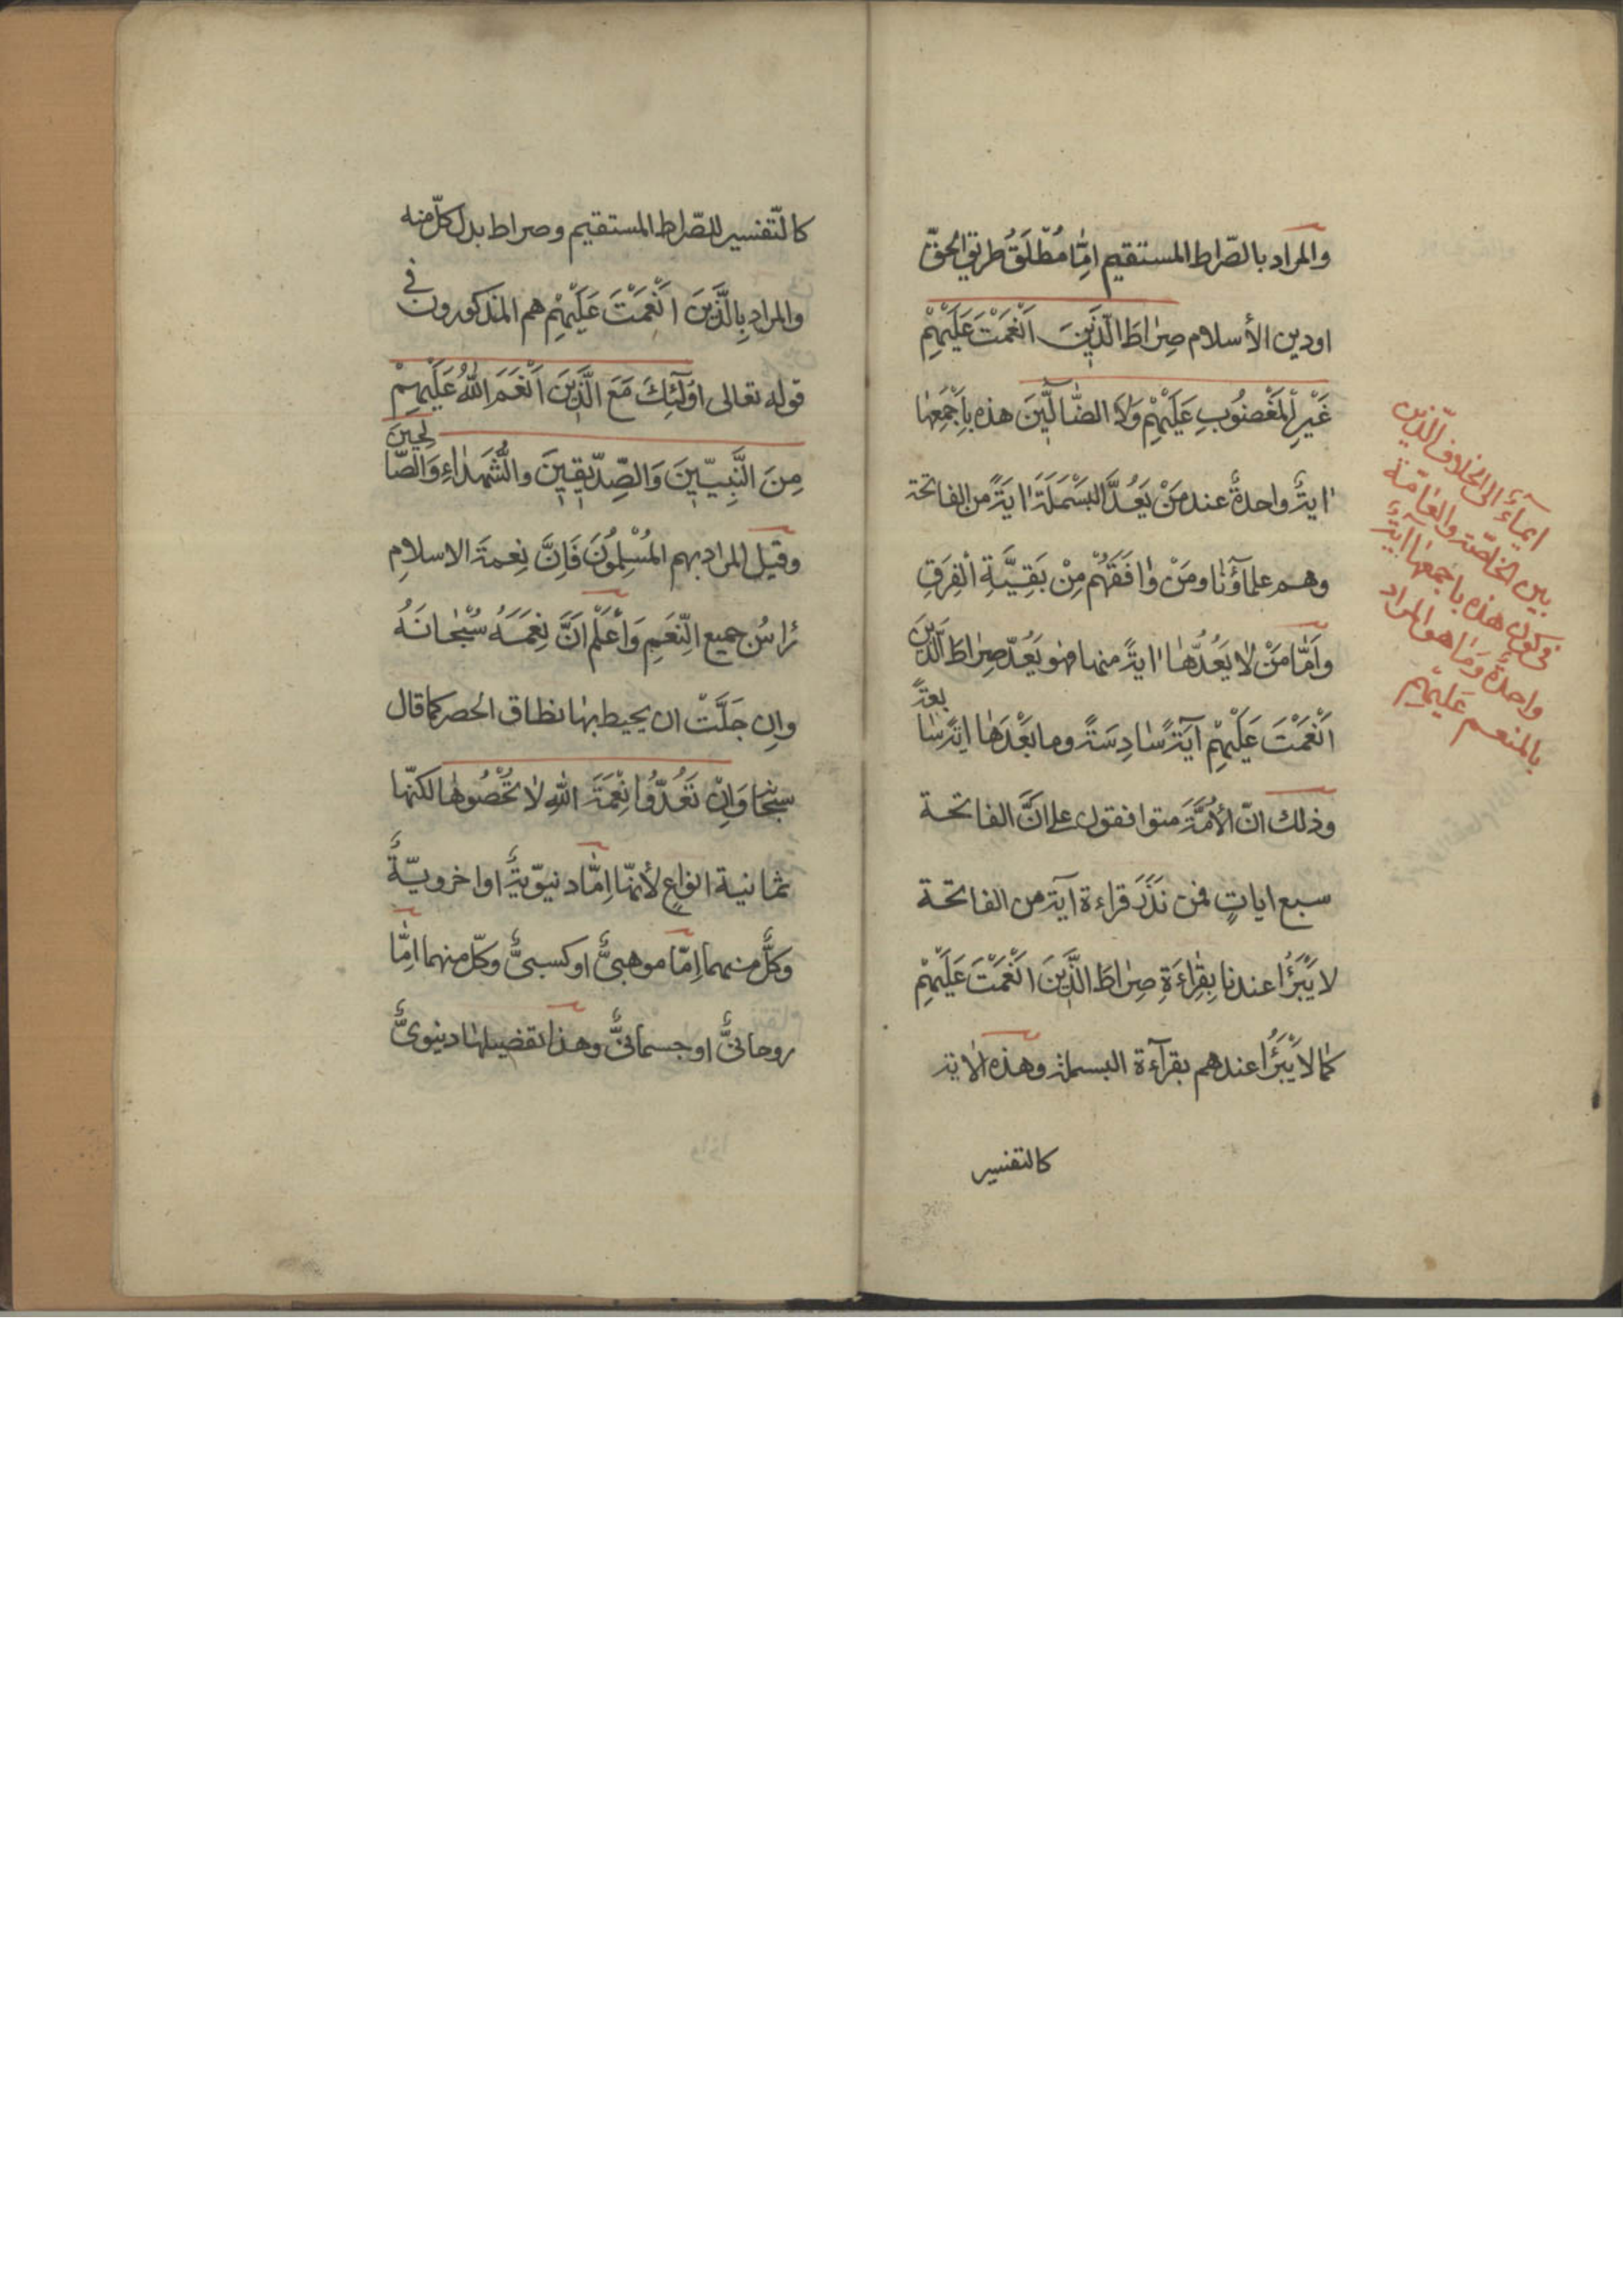 والمراد بالصّراط المستقيم امّا مُطْلَقُ طريق الحقّ
اودين الأسلام صِراطَ الَّذينَ اَنْعَمْتَ عَلَيْهِمْ
غَيْرِ الْمَغْضُوبِ عَلَيْهِمْ وَلاَ الضّالّينَ هذه بِاَجْمَعِها
اية واحدة عند مَنْ يَعُدَّ البَسْمَلَةَ ايَةً من الفاتحة
وهم علماؤنا ومَنْ وافَقَهُمْ مِنْ بَقِيَّةِ الْفِرَقِ
وَاَمّا مَنْ لا يَعُدُّها ايةً منها فهو يَعُدّ صِراطَ الَّذينَ
اَنْعَمْتَ عَلَيْهِمْ آيَةً سادِسَةً وما بَعْدَها ايةً سا
بعةً
وذلك انّ الأمَّةَ متوافقون على انَّ الفاتحة
سبع اياتٍ فمن نَذَرَ قراءة آية من الفاتحة
لا يَبْرَأُ عندنا بِقِراءَةِ صِراطَ الَّذينَ اَنْعَمْتَ عَلَيْهِمْ
كما لا يَبْرَأُ عندهم بقرآءة البسملة وهذه الاية
كالتفسير
ايمآء الى الخلاف الّذين
بين الخاصّة والعامّة
فى كون هذه باجمعها آية
واحدةً وما هو المراد
بالمنعم عليهم
كالتّفسير للصّراط المستقيم وصراط بدل كلّ منه
والمراد بِالَّذينَ اَنْعَمْتَ عَلَيْهِمْ هم المذكورون فى
قوله تعالى اوُلٓئِكَ مَعَ الَّذينَ اَنْعَمَ اللهُ عَلَيْهِمْ
مِنَ النَّبِيّينَ وَالصِّدّيقينَ والشُّهَداءِ وَالصّا
لِحينَ
وقيل المراد بهم المُسْلِمُونَ فَاِنَّ نِعمةَ الاسلامِ
رَاسُ جميع النِّعَمِ وَاعْلَمْ اَنَّ نِعَمَهُ سُبْحانَهُ
وان جَلَّتْ ان يحيط بها نطاق الحصر كما قال
سبحا وَاِنْ تَعُدّوُا نِعْمَةَ اللهِ لا تُحْصُوها لكنّها
ثمانية انواع لأنّها اِمّا دنيوّيةٌ او اخرويّةٌ
وكلٌّ منهما اِمّا موهبىٌّ او كسبىٌّ وكلّ منهما امّا
روحانىٌّ او جسمانىٌّ وهذا تفصيلها دنيوىٌّ